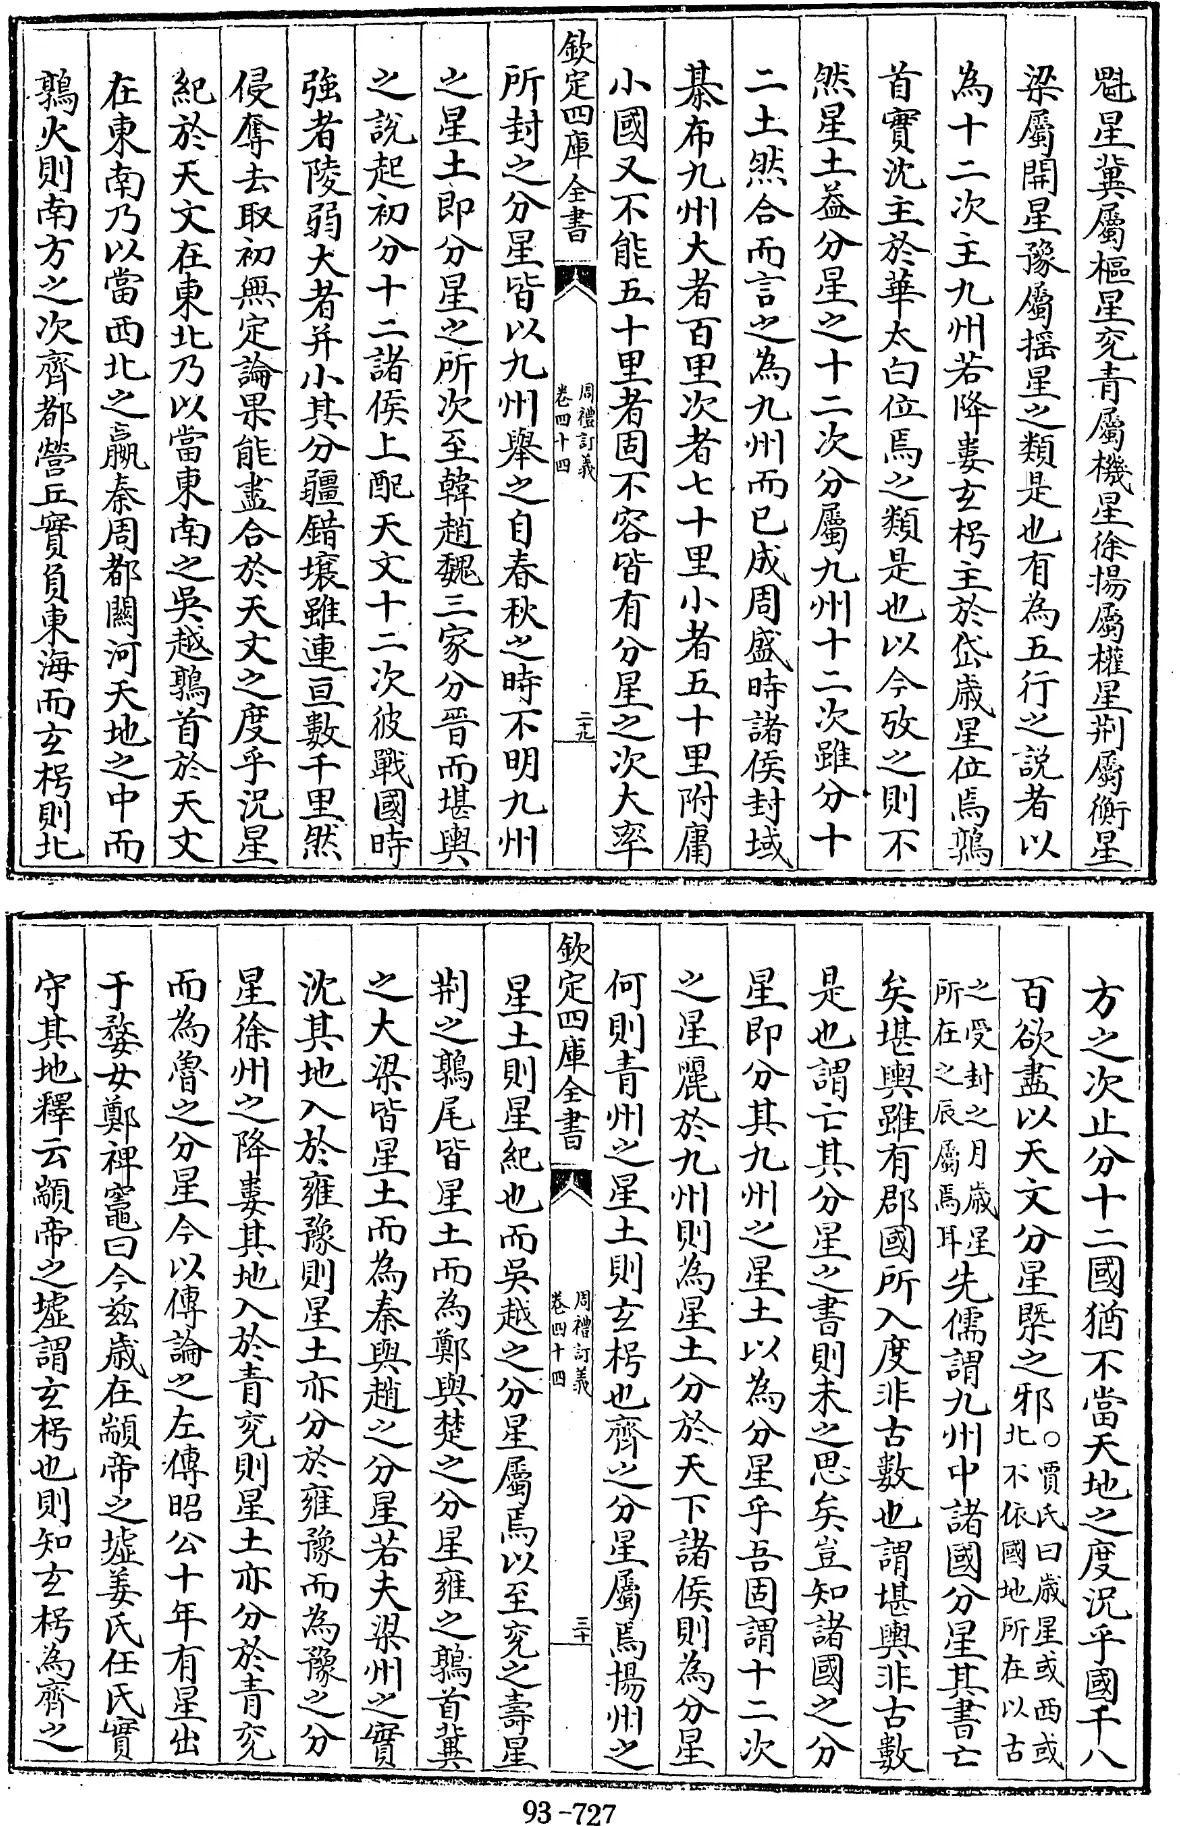 魁星冀屬樞星兖青屬機星徐揚屬權星荆屬衡星
梁屬開星豫屬揺星之類是也有為五行之説者以
為十二次主九州若降婁𤣥枵主於岱歳星位焉鶉
首實沈主於華太白位焉之類是也以今攷之則不
然星土葢分星之十二次分屬九州十二次雖分十
二土然合而言之為九州而已成周盛時諸侯封域
棊布九州大者百里次者七十里小者五十里附庸
小國又不能五十里者固不容皆有分星之次大率
欽定四庫全書
周禮訂義
卷四十四
二十九
所封之分星皆以九州舉之自春秋之時不明九州
之星土即分星之所次至韓趙魏三家分晉而堪輿
之説起初分十二諸侯上配天文十二次彼戰國時
強者陵弱大者并小其分疆錯壤雖連亘數千里然
侵奪去取初無定論果能盡合於天文之度乎况星
紀於天文在東北乃以當東南之吳越鶉首於天文
在東南乃以當西北之嬴秦周都闗河天地之中而
鶉火則南方之次齊都營丘實負東海而𤣥枵則北
方之次止分十二國猶不當天地之度况乎國千八
百欲盡以天文分星槩之邪○賈氏曰歳星或西或
北不依國地所在以古
之受封之月歳星
所在之辰屬焉耳
先儒謂九州中諸國分星其書亡
矣堪輿雖有郡國所入度非古數也謂堪輿非古數
是也謂亡其分星之書則未之思矣豈知諸國之分
星即分其九州之星土以為分星乎吾固謂十二次
之星麗於九州則為星土分於天下諸侯則為分星
何則青州之星土則𤣥枵也齊之分星屬焉揚州之
欽定四庫全書
周禮訂義
卷四十四
三十
星土則星紀也而吳越之分星屬焉以至兖之壽星
荆之鶉尾皆星土而為鄭與楚之分星雍之鶉首冀
之大梁皆星土而為秦與趙之分星若夫梁州之實
沈其地入於雍豫則星土亦分於雍豫而為豫之分
星徐州之降婁其地入於青兖則星土亦分於青兖
而為魯之分星今以傳論之左傳昭公十年有星出
于婺女鄭裨竈曰今兹歳在顓帝之墟姜氏任氏實
守其地釋云顓帝之墟謂𤣥枵也則知𤣥枵為齊之
93-727